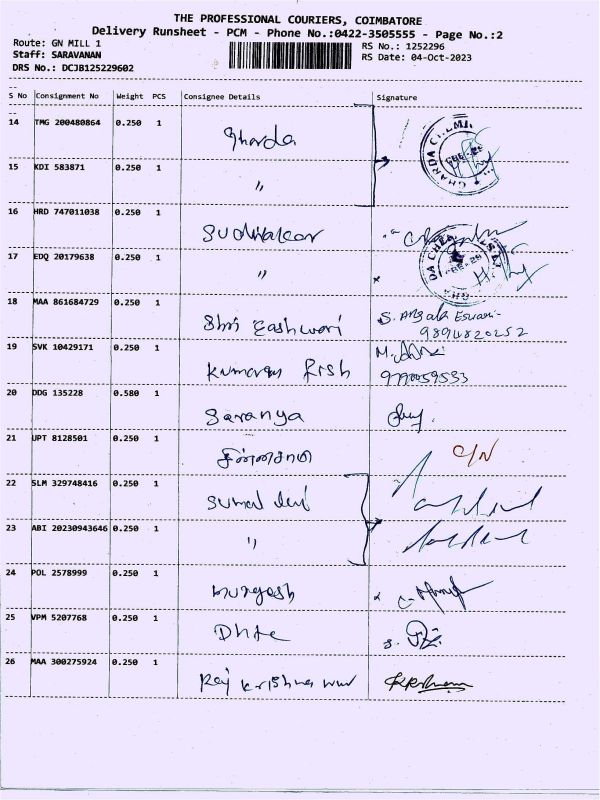 THE PROFESSIONAL COURIERS, COIMBATORE
Delivery Runsheet - PCM - Phone No.:0422-3505555 - Page No.:2
Route: GN MILL 1
RS No.: 1252296
Staff: SARAVANAN
RS Date: 04-Oct-2023
DRS No.: DCJB125229602
S No Consignment No Weight PCS Consignee Details Signature
14 TMG 200480864 0.250 1 Gharda
15 KDI 583871 0.250 1 "
16 HRD 747011038 0.250 1 Sudhakar
17 EDQ 20179638 0.250 1 "
18 MAA 861684729 0.250 1 Shri Eashwari S. Angala Eswari
9894820252
19 SVK 10429171 0.250 1 Kumaran
20 DDG 135228 0.580 1 Saranya
21 UPT 8128501 0.250 1 சின்னசாமி O/N
22 SLM 329748416 0.250 1
23 ABI 20230943646 0.250 1 "
24 POL 2578999 0.250 1 Murugesh
25 VPM 5207768 0.250 1
26 MAA 300275924 0.250 1 Raj Krishna